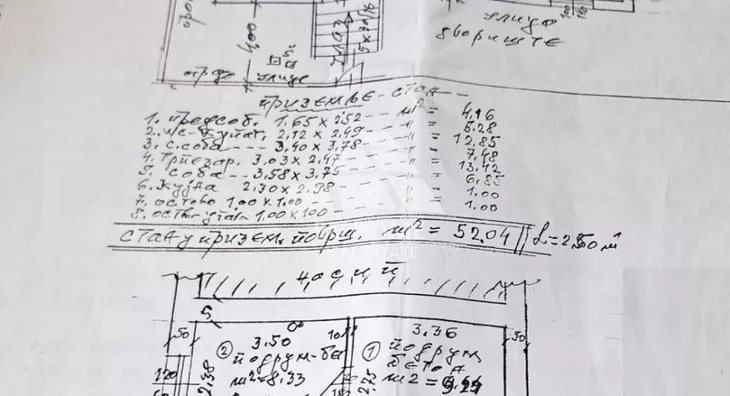 4,00
улице
улица
двориште
приземље - стан
1. предсоб. 1.65 x 2.52 — m² = 4,16
2. 2.12 x 2.49 — " = 5.28
3. с.соба — 3,40 x 3,78 — " = 12.85
4. трпезар. 3.03 x 2.47 — " = 7,48
5. соба — 3,58 x 3,75 — " = 13,42
6. кујна 2.30 x 2.98 — " = 6.85
7. остава 1.00 x 1.00 — " = 1.00
8. 1.00 x 100 — " = 1.00
стан у призем. површ. m² = 52.04
насип
5
50
3.50
10
3.36
50
② подрум-бе
① подрум
бетон
m² = 8.33
m² =
2.38
2.75
120